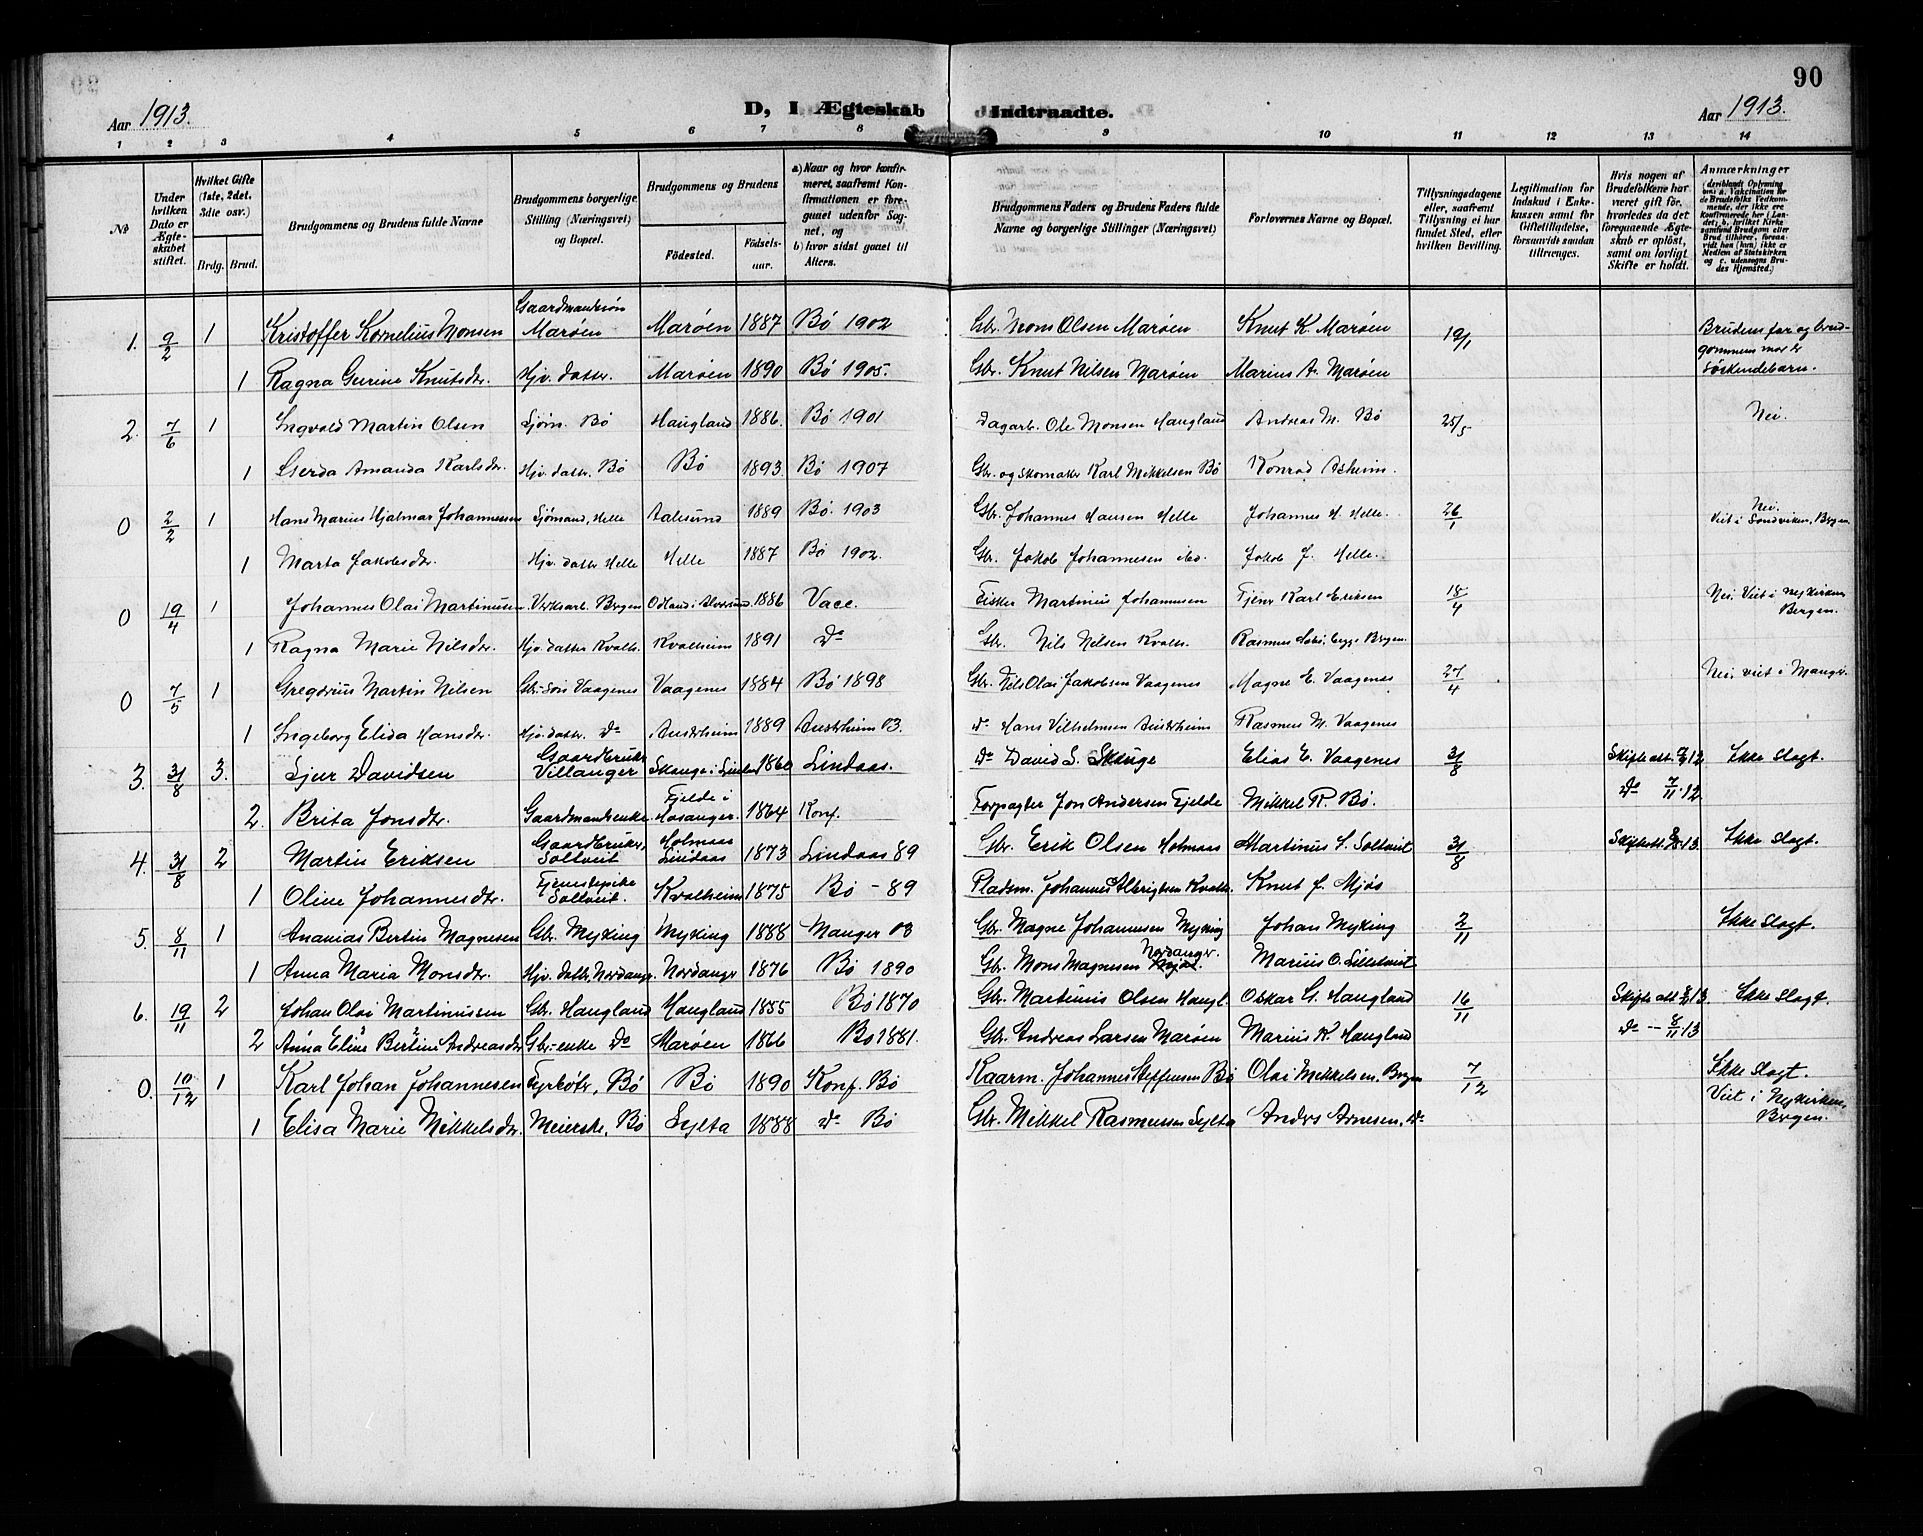 90
Aar 1913.
D, I. Ægteskab Indtraadte.
Aar 1913.
1 2 3 4 5 6 7 8 9 10 11 12 13 14
№
Under hvilken Dato er Ægteskabet stiftet.
Hvilket Gifte (1ste, 2det, 3die osv.)
Brdg. Brud.
Brudgommens og Brudens fulde Navne
Brudgommens borgerlige Stilling (Næringsvei) og Bopæl.
Brudgommens og Brudens
Fødested.
Fødselsaar.
a) Naar og hvor konfirmeret, saafremt Konfirmationen er foregaaet udenfor Sognet, og
b) hvor sidst gaaet til Alters.
Brudgommens Faders og Brudens Faders fulde Navne og borgerlige Stillinger (Næringsvei)
Forlovernes Navne og Bopæl.
Tillysningsdagene eller, saafremt Tillysning ei har fundet Sted, efter hvilken Bevilling.
Legitimation for Indskud i Enkekassen samt for Giftetilladelse, forsaavidt saadan tiltrænges.
Hvis nogen af Brudefolkene har været gift før, hvorledes da det foregaaende Ægteskab er opløst, samt om lovligt Skifte er holdt.
Anmærkninger
(deriblandt Oplysning om: a. Vakcination for de Brudefolks Vedkommende, der ikke ere Konfirmerede her i Landet; b. hvilket Kirkesamfund Brudgom eller Brud tilhører, forsaavidt han (hun) ikke er Medlem af Statskirken og c. udensogns Brudes Hjemsted.)
1. 9/2 1 Kristoffer Kornelius Monsen Gaardmandssøn Marøen Marøen 1887 Bø 1902 Gbr. Mons Olsen Marøen Knut K. Marøen 19/1 Brudens far og brudgommens mor er Søskendebarn.
1 Ragna Gurine Knutsdtr. Hjv. datter. Marøen 1890 Bø 1905. Gbr. Knut Nilsen Marøen Marius A. Marøen
2. 7/6 1 Ingvald Martin Olsen Sjøm. Bø Haugland 1886. Bø 1901 Dagarb. Ole Monsen Haugland Andreas M. Bø 25/5 Nei.
1 Gerda Amanda Karlsdtr. Hjv. datter. Bø Bø 1893. Bø 1907 Gbr. og Skomaker Karl Mikkelsen Bø Konrad Askeim.
0 2/2 1 Hans Marius Hjalmar Johannessen Sjømand, Helle Aalesund 1889 Bø. 1903 Gbr. Johannes Hansen Helle Johannes H. Helle. 26/1 Nei. Viet i Sandviken, Bergen.
1 Marta Jakobsdtr. Hjv. datter Helle Helle 1887 Bø 1902. Gbr. Jakob Johannesen ibd. Jakob J. Helle.
0 19/4 1 Johannes Olai Martinusen Verksarb. Bergen Odland i Alversund 1886 Vacc. Fisker Martinus Johannesen Tjener Karl Eriksen 18/4 Nei. Viet i Nykirken, Bergen.
1 Ragna Marie Nilsdtr. Hjv. datter Kvalh. Kvalheim 1891 Do Gbr. Nils Nilsen Kvalh. Rasmus Bergen.
0 7/5 1 Gregorius Martin Nilsen Gbr.-søn Vaagenes Vaagenes 1884 Bø 1898 Gbr. Nils Olai Jakobsen Vaagenes Magne E. Vaagenes 27/4 Nei, viet i Manger.
1 Ingeborg Elida Hansdtr. Hjv. datter. Do Austrheim 1889 Austrheim 03. do Hans Vilhelmsen Austrheim Rasmus M. Vaagenes
3. 31/8 3. Sjur Davidsen Gaardbruker Villanger Skauge i Lindaas 1860 Lindaas. Do David S. Skauge Elias E. Vaagenes 31/8 Skifteatt. 12 Ikke Slagt.
2. Brita Jonsdtr. Gaardmandsenke. Fjelde i Hosanger. 1864 Konf. Forpagter Jon Andersen Fjelde Mikkel R. Bø. Do 7/11.12
4. 31/8 2 Martin Eriksen Gaardbruker, Soltveit Holmaas Lindaas 1873 Lindaas 89 Gbr. Erik Olsen Holmaas Martinus S. Soltveit 31/8 Skifteatt. 13. Ikke Slagt.
1 Oline Johannesdtr. Tjenestepike Soltveit. Kvalheim 1875 Bø - 89 Pladsm. Johannes Albrigtsen Kvalh. Knut J. Mjøs
5. 8/11 1 Ananias Bertin Magnesen Gbr. Myking Myking 1888 Manger 03 Gbr. Magne Johannesen Myking Johan Myking 2/11 Ikke Slagt.
1 Anna Maria Monsdtr. Hjv. datter Nordanger. Nordanger 1876 Bø 1890 Gbr. Mons Magnesen Nordanger. Marius O. Lilletveit
6. 19/11 2 Johan Olai Martinussen Gbr. Haugland Haugland 1855 Bø 1870 Gbr. Martinus Olsen Haugl. Oskar G. Haugland 16/11 Skifte att. 13. Ikke Slagt.
2 Anna Eline Bertine Andreasdtr Gbr.-enke Do Marøen 1866 Bø 1881. Gbr. Andreas Larsen Marøen Marius K. Haugland Do - 8/11 13
0. 10/12 1 Karl Johan Johannesen Fyrbøter, Bø Bø 1890 Konf. Bø Kaarm. Johannes Steffensen Bø Olai Mikkelsen, Bergen 7/12 Ikke Slagt. Viet i Nykirken, Bergen.
1 Elisa Marie Mikkelsdtr. Meierske, Bø Sylta 1888 do Bø Gbr. Mikkel Rasmussen Sylta Anders Arnesen, do